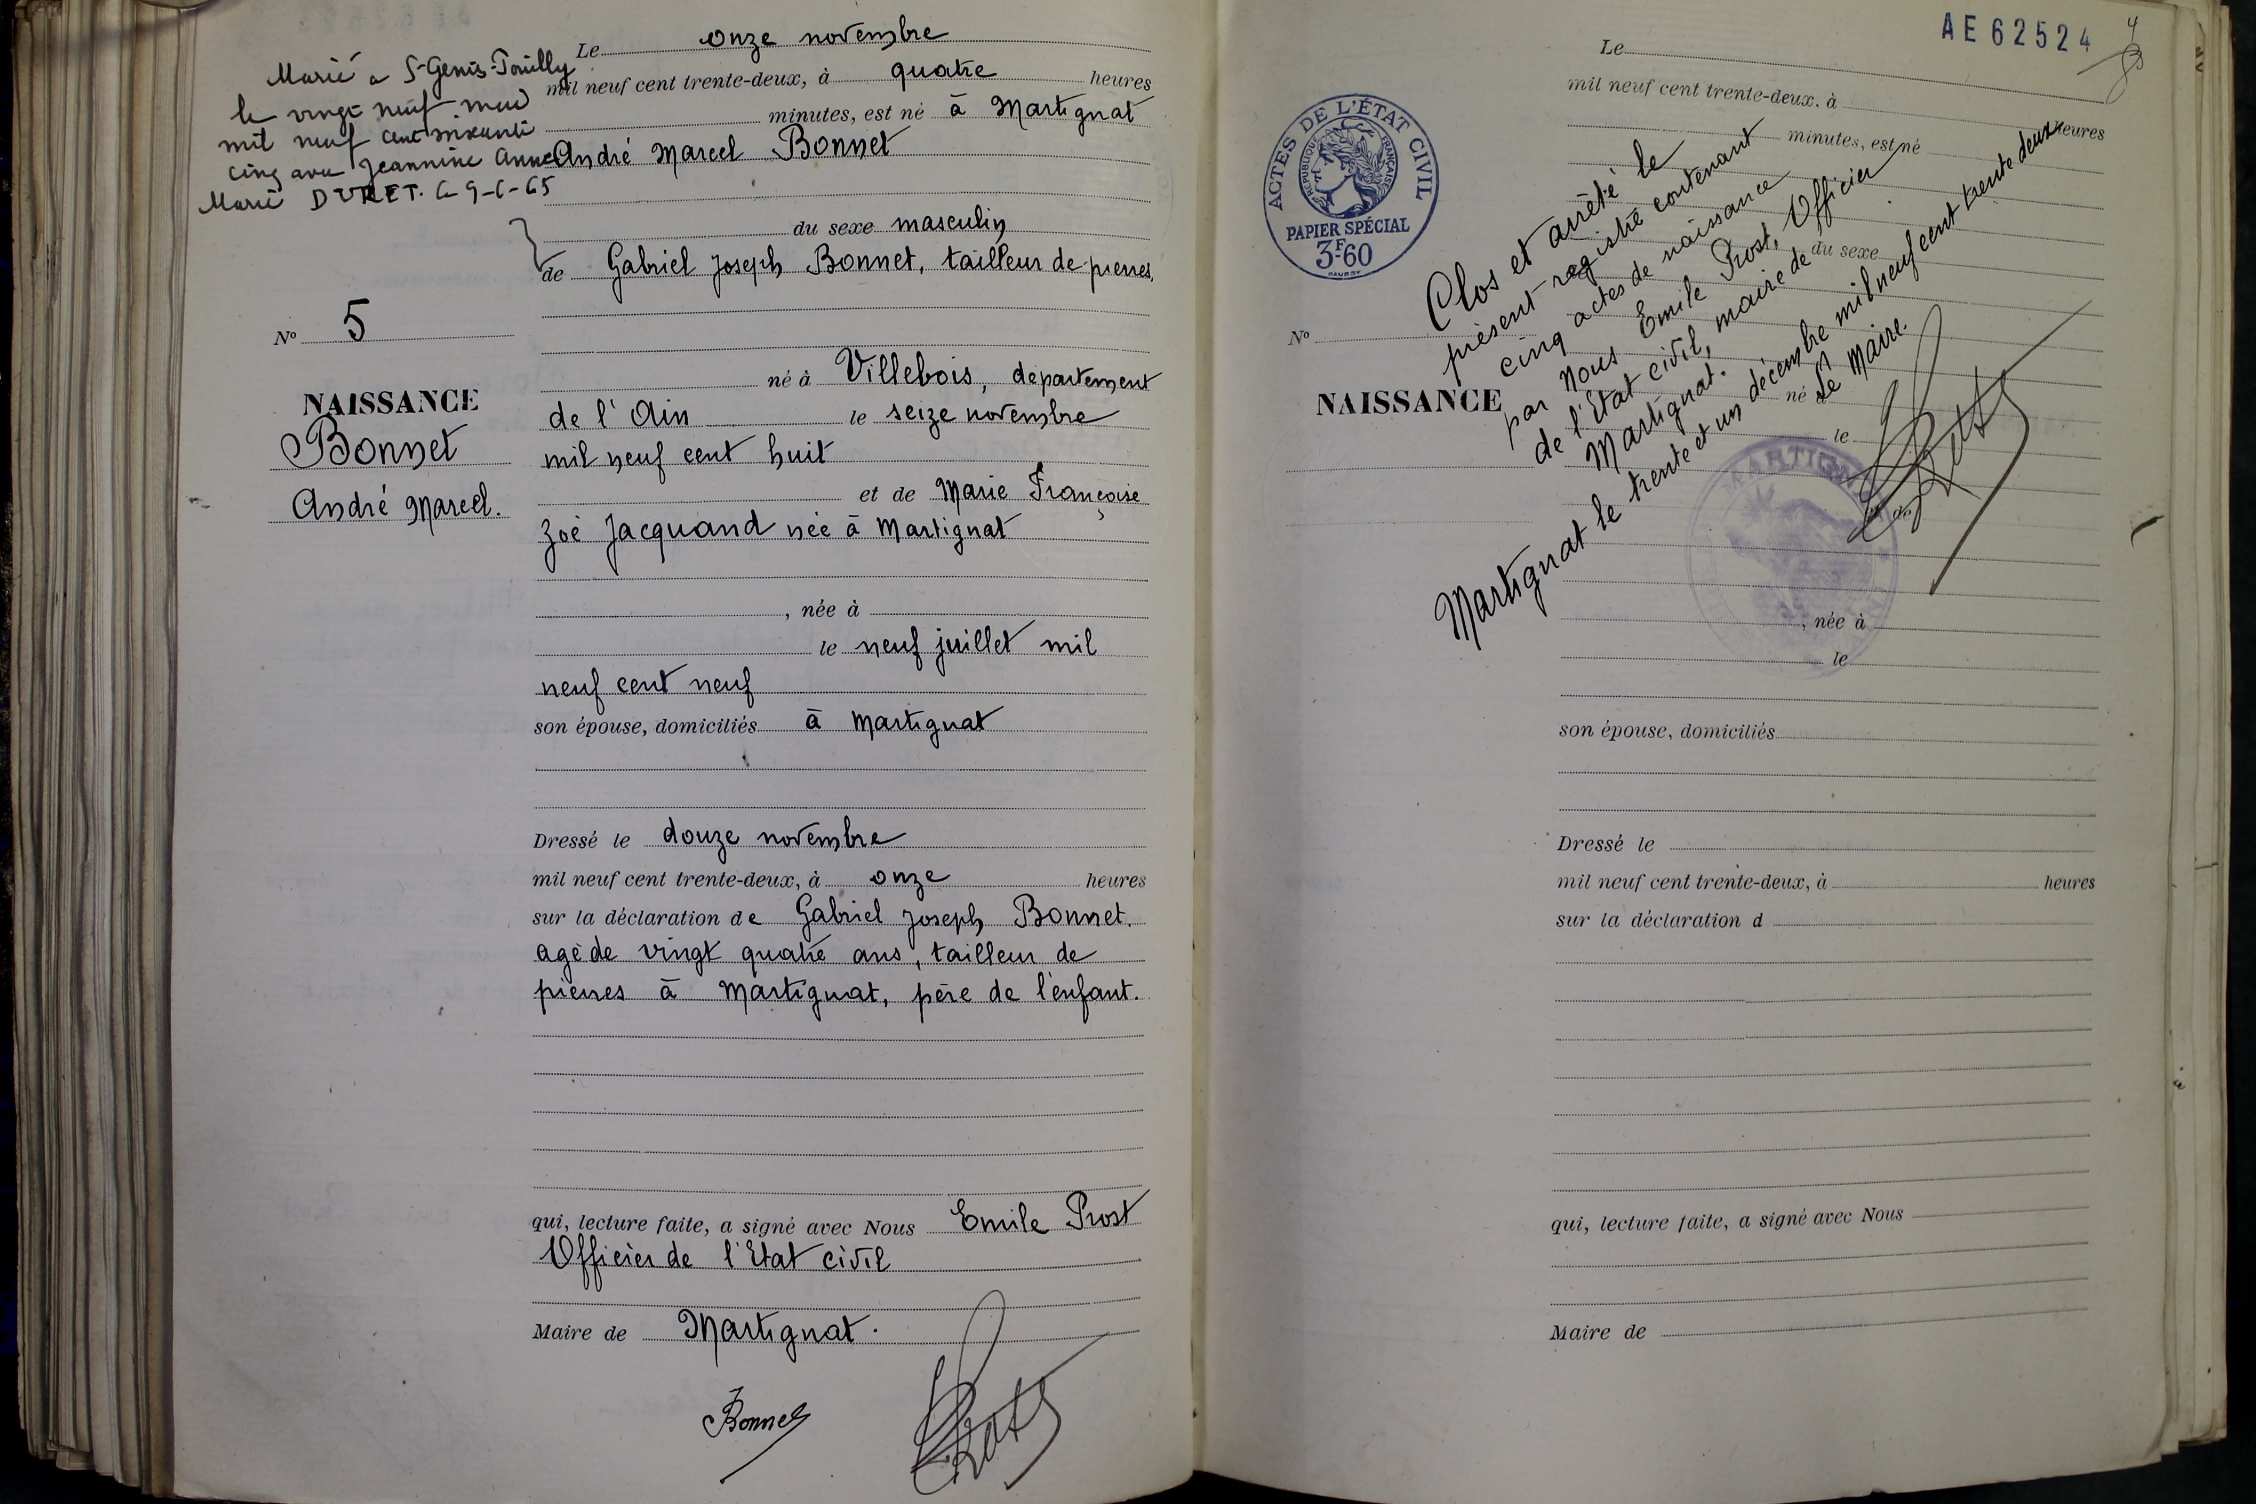 Marié à St-Genis-Pouilly
le vingt neuf mai
mil neuf cent soixante
cinq avec Jeannine Anne
Marie DURET. Le 9-6-65
Le onze novembre
mil neuf cent trente-deux, à quatre heures
minutes, est né à Martignat
André Marcel Bonnet
du sexe masculin
de Gabriel Joseph Bonnet, tailleur de pierres,
né à Villebois, département
de l'Ain le seize novembre
mil neuf cent huit
et de Marie Françoise
Zoé Jacquand née à Martignat
, née à
le neuf juillet mil
neuf cent neuf
son épouse, domiciliés à Martignat
Dressé le douze novembre
mil neuf cent trente-deux, à onze heures
sur la déclaration de Gabriel Joseph Bonnet.
agé de vingt quatre ans, tailleur de
pierres à Martignat, père de l'enfant.
qui, lecture faite, a signé avec Nous Emile Prost
Officier de l'Etat civil
Maire de Martignat.
Bonnet
Prost
No 5
NAISSANCE
Bonnet
André Marcel.
AE 62524
4
ACTES DE L'ÉTAT CIVIL
RÉPUBLIQUE FRANÇAISE
PAPIER SPÉCIAL
3F.60
Le
mil neuf cent trente-deux, à heures
minutes, est né
du sexe
No
NAISSANCE
né à
le
et de
, née à
le
son épouse, domiciliés
Dressé le
mil neuf cent trente-deux, à heures
sur la déclaration d
qui, lecture faite, a signé avec Nous
Maire de
Clos et arrêté le
présent registre contenant
cinq actes de naissance
par Nous Emile Prost, Officier
de l'Etat civil, maire de
Martignat.
Martignat le trente et un décembre mil neuf cent trente deux
Le Maire.
Prost
MARTIGNAT